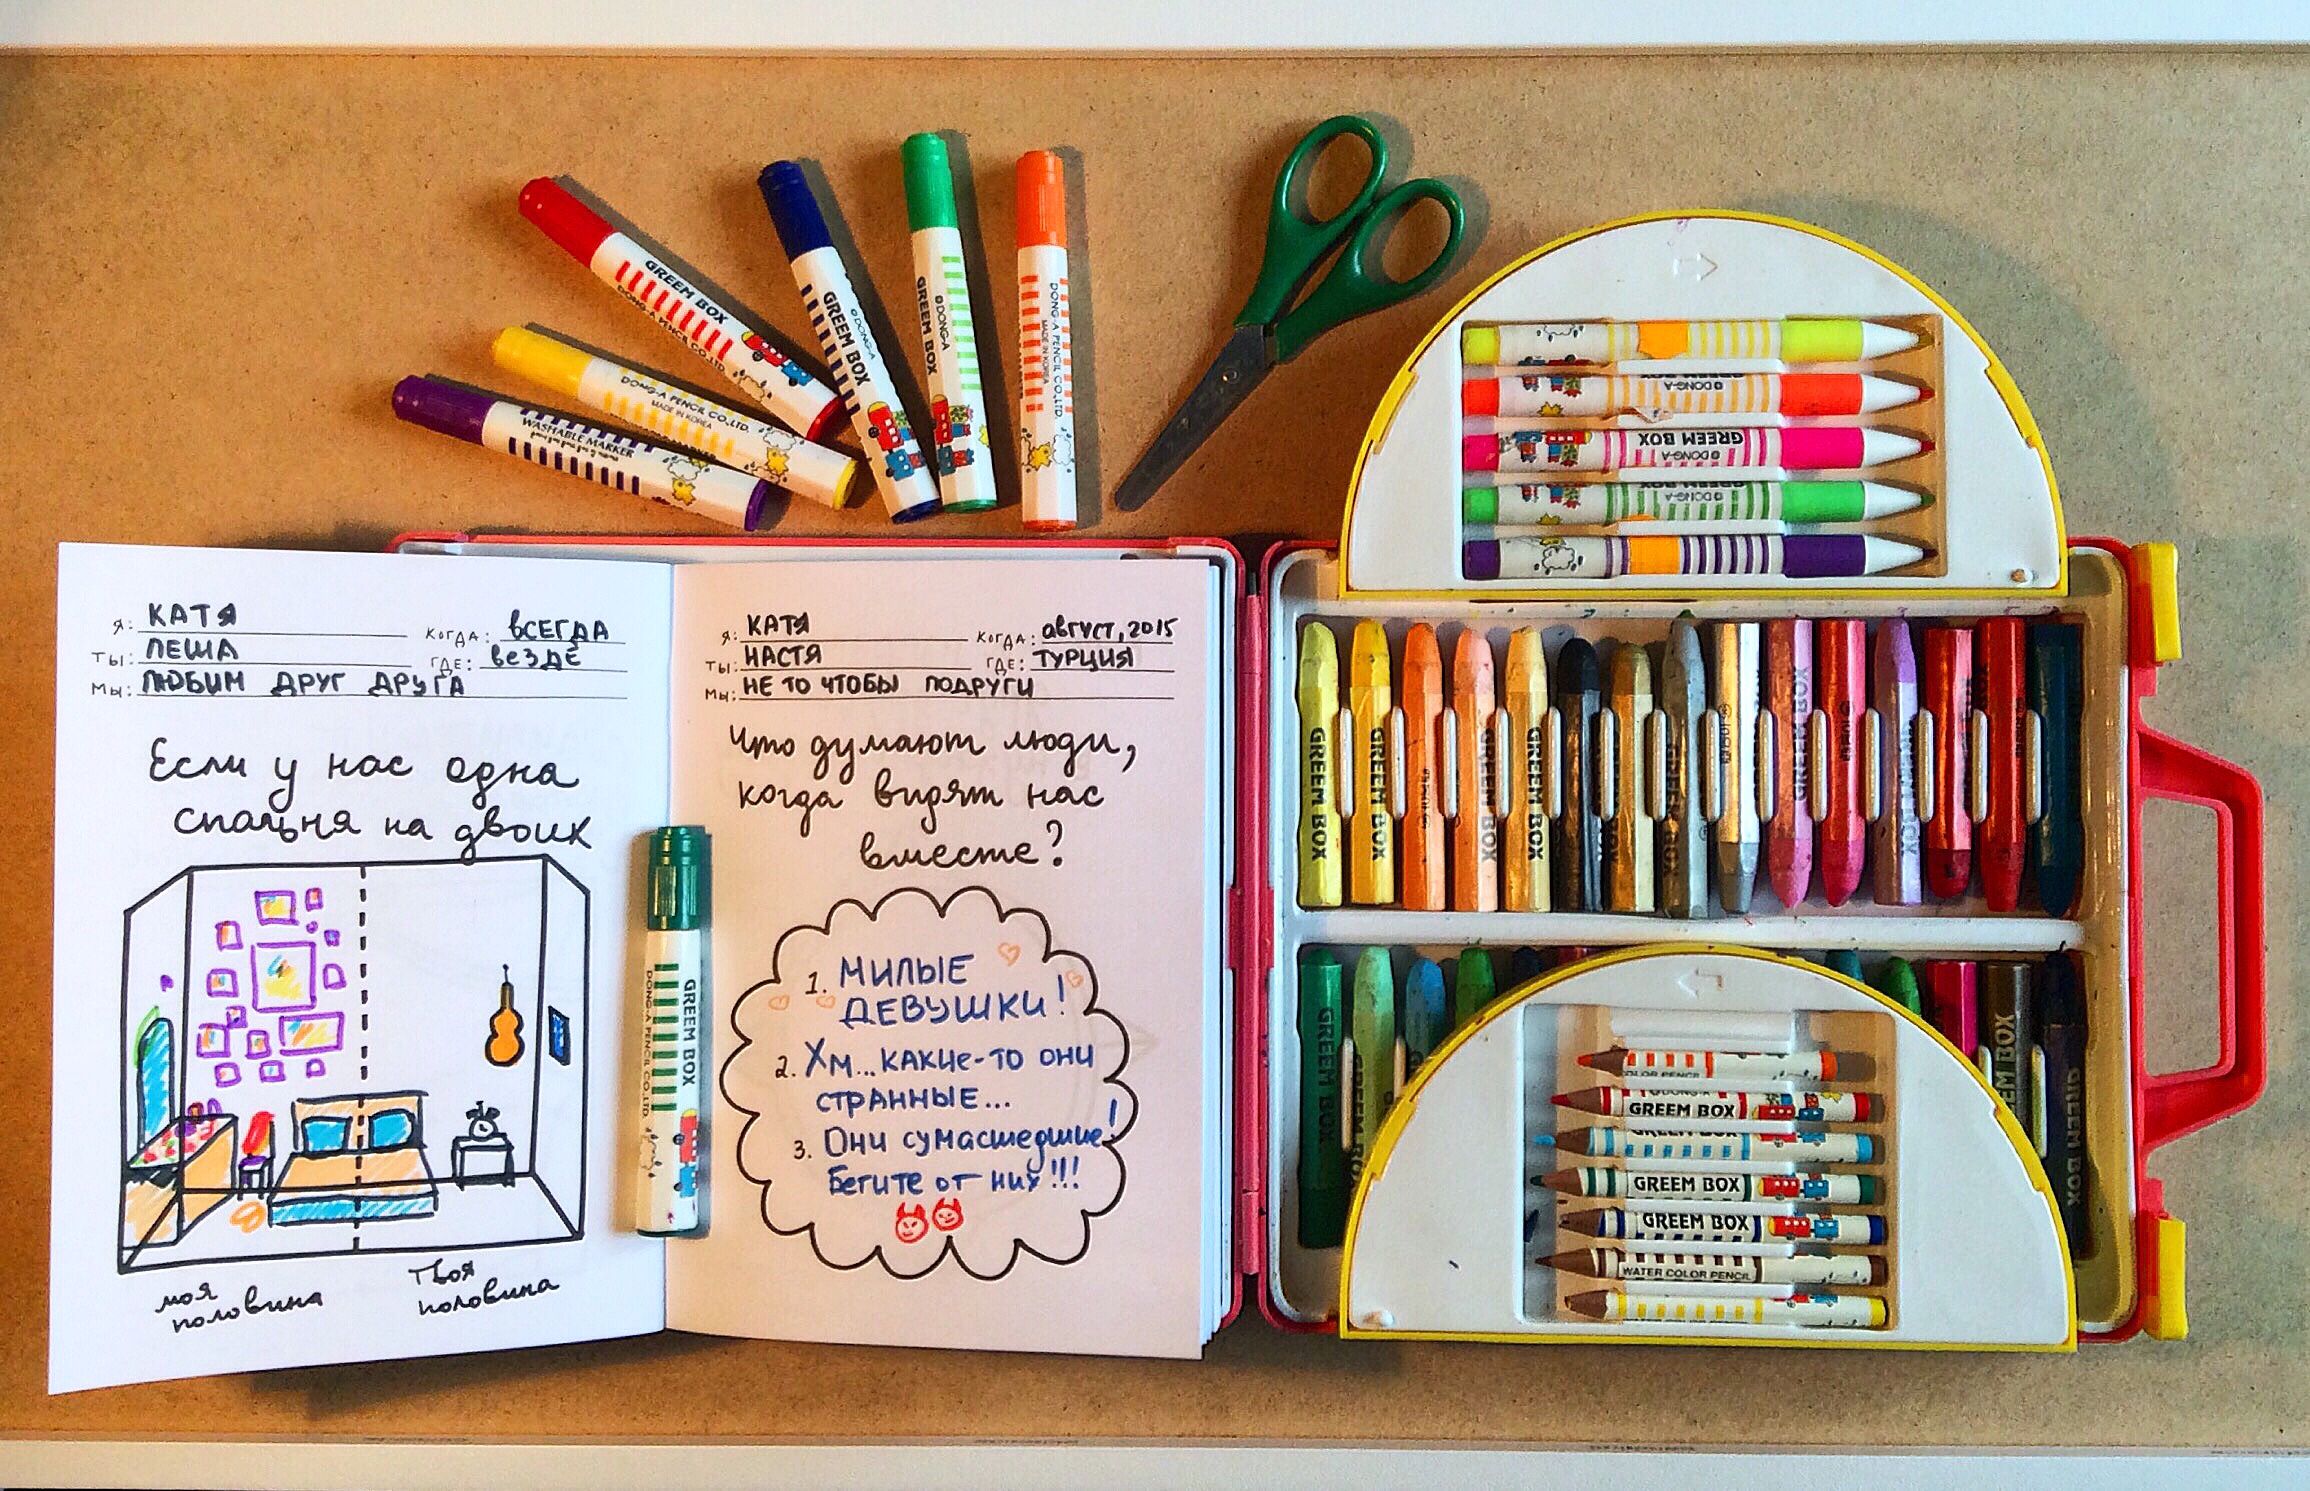 GREEM BOX
DONG-A PENCIL CO.,LTD.
DONG-A PENCIL CO.,LTD.
MADE IN KOREA
WASHABLE MARKER
©DONG-A
GREEM BOX
©DONG-A
GREEM BOX
DONG-A PENCIL CO.,LTD.
MADE IN KOREA
©DONG-A
GREEM BOX
©DONG-A
©DONG-A
Я: КАТЯ КОГДА: ВСЕГДА
ТЫ: ЛЕША ГДЕ: ВЕЗДЕ
МЫ: ЛЮБИМ ДРУГ ДРУГА
Если у нас одна
спальня на двоих
моя
половина
Твоя
половина
GREEM BOX
DONG-A PENCIL CO.,LTD.
Я: КАТЯ КОГДА: август, 2015
ТЫ: НАСТЯ ГДЕ: ТУРЦИЯ
МЫ: НЕ ТО ЧТОБЫ ПОДРУГИ
Что думают люди,
когда видят нас
вместе?
1. МИЛЫЕ
ДЕВУШКИ!
2. Хм... какие-то они
странные...
3. Они сумасшедшие!
Бегите от них!!!
GREEM BOX
GREEM BOX
GREEM BOX
GREEM BOX
GREEM BOX
GREEM BOX
GREEM BOX
GREEM BOX
COLOR PENCIL
GREEM BOX
GREEM BOX
GREEM BOX
GREEM BOX
WATER COLOR PENCIL